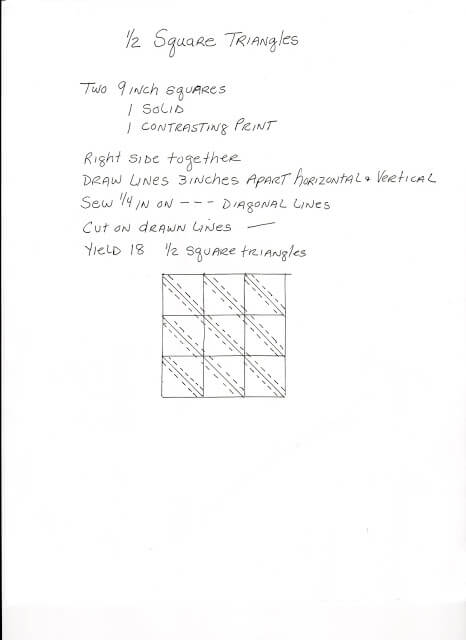 1/2 Square Triangles
Two 9 inch squares
1 Solid
1 Contrasting Print
Right side together
Draw Lines 3 inches Apart horizontal & Vertical
Sew 1/4 in on --- Diagonal Lines
Cut on drawn Lines —
Yield 18 1/2 Square triangles